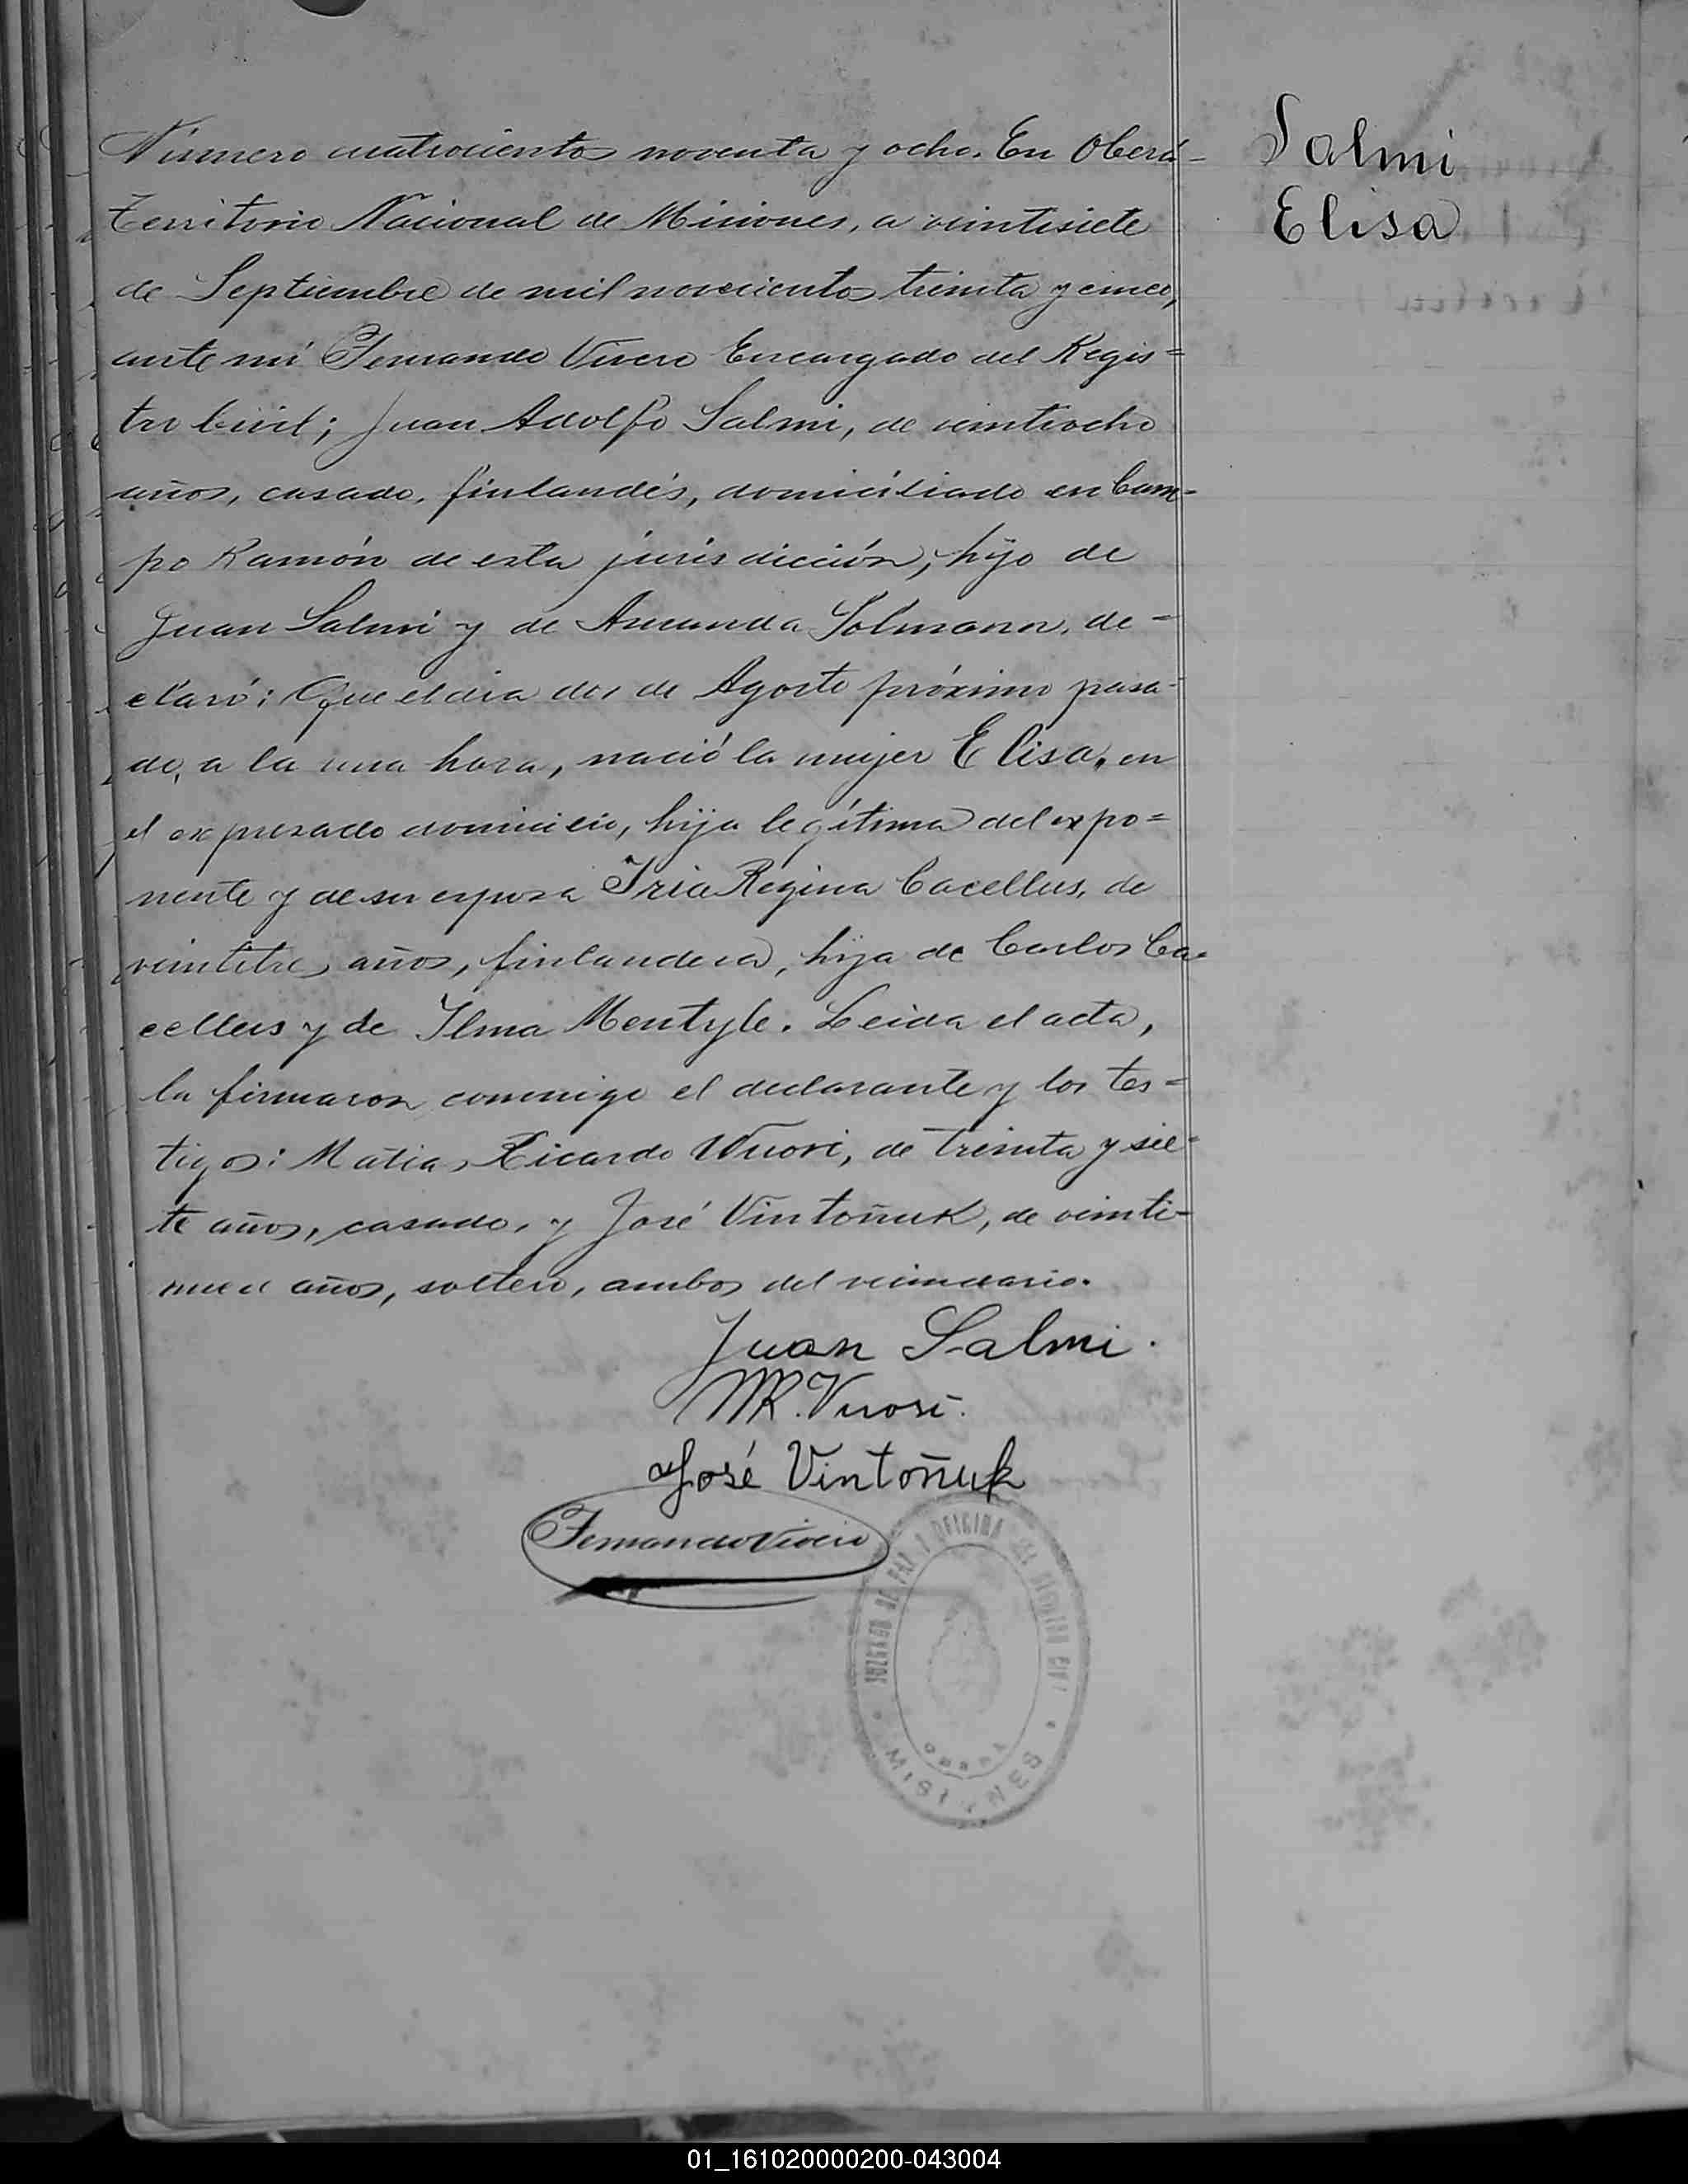 Número cuatrocientos noventa y ocho. En Oberá-
Territorio Nacional de Misiones, a veintisiete
de Septiembre de mil novecientos treinta y cinco,
ante mí Fernando Vivero Encargado del Regis=
tro Civil; Juan Adolfo Salmi, de veintiocho
años, casado, finlandés, domiciliado en Cam-
po Ramón de esta jurisdicción, hijo de
Juan Salmi y de Amanda Solmann, de=
claró: Que el día dos de Agosto próximo pasa-
do, a la una hora, nació la mujer Elisa, en
el expresado domicilio, hija legítima del expo=
nente y de su esposa Iria Regina Cacellus, de
veintitres años, finlandesa, hija de Carlos Ca=
cellus y de Ilma Mentyle. Leida el acta,
la firmaron conmigo el declarante y los tes=
tigos: Matias Ricardo Wuori, de treinta y sie=
te años, casado, y José Vintoñuk, de veinti-
nueve años, soltero, ambos del vecindario.
Juan Salmi.
MR. Vuori.
José Vintoñuk
Fernando Vivero
JUZGADO DE PAZ Y OFICINA DEL REGISTRO CIVIL
OBERA
MISIONES
Salmi
Elisa
01_161020000200-043004